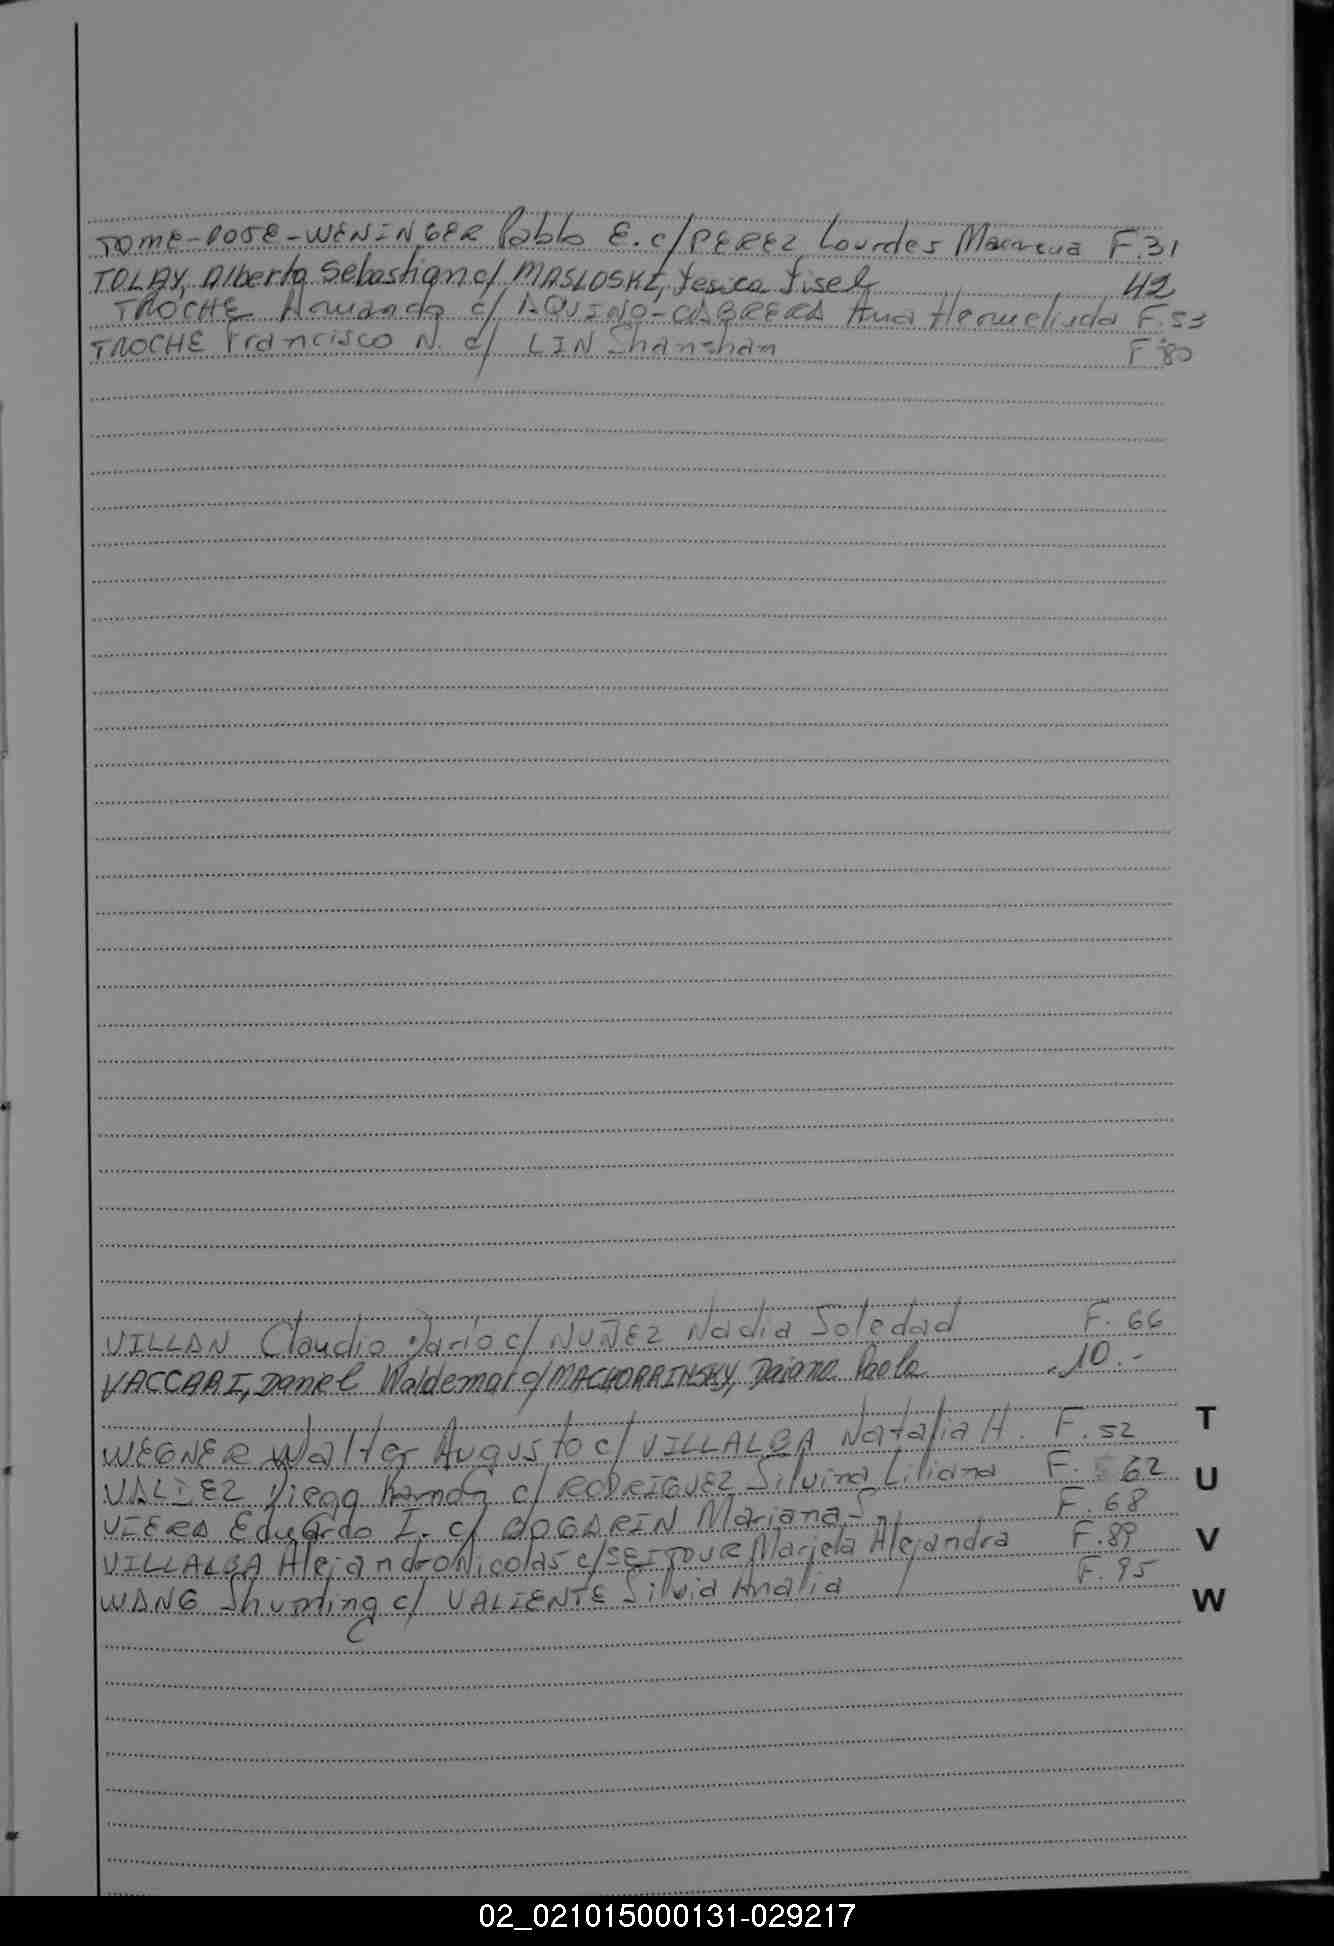 TOME-DOSE-WENINGER Pablo E. c/ PEREZ Lourdes Macarena F.31
TOLAY, Alberto Sebastian c/ MASLOSKI, Jesica Jisel 42
TROCHE Armando c/ AQUINO-CABRERA Ana Hermelinda F.53
TROCHE Francisco N. c/ LIN Shanshan F.80
VILLAN Claudio Dario c/ NUÑEZ Nadia Soledad F.66
VACCARI, Daniel Waldemar c/ Daiana Paola .10.-
WEGNER Walter Augusto c/ VILLALBA Natalia H. F.52
T
VALIEZ c/ RODRIGUEZ Silvina Liliana F. 62
U
VIERA Eduardo I. c/ BOGARIN Mariana S. F.68
VILLALBA Alejandro Nicolas c/ Mariela Alejandra F.89
V
WANG Shuming c/ VALIENTE Silvia Analia F.95
W
02_021015000131-029217